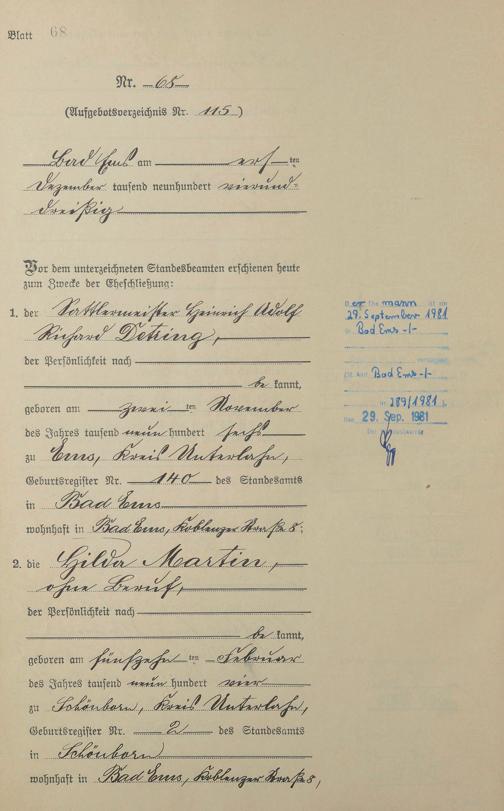 Blatt 68
Nr. 68
(Aufgebotsverzeichnis Nr. 115)
Bad Ems am ersten
Dezember tausend neunhundert vierund-
dreißig
Vor dem unterzeichneten Standesbeamten erschienen heute
zum Zwecke der Eheschließung:
1. der Sattlermeister Heinrich Adolf
Richard Detring,
der Persönlichkeit nach
be kannt,
geboren am zwei ten November
des Jahres tausend neun hundert sechs
zu Ems, Kreis Unterlahn,
Geburtsregister Nr. 140 des Standesamts
in Bad Ems
wohnhaft in Bad Ems, Koblenzer Straße 8;
2. die Hilda Martin,
ohne Beruf,
der Persönlichkeit nach
be kannt,
geboren am fünfzehn ten Februar
des Jahres tausend neun hundert vier
zu Schönborn, Kreis Unterlahn,
Geburtsregister Nr. 2 des Standesamts
in Schönborn
wohnhaft in Bad Ems, Koblenzer Straße 8,
Der Ehemann ist am
29. September 1981
in Bad Ems -/-
verstorben
Bad Ems -/-
Nr. 289/1981
Den 29. Sep. 1981